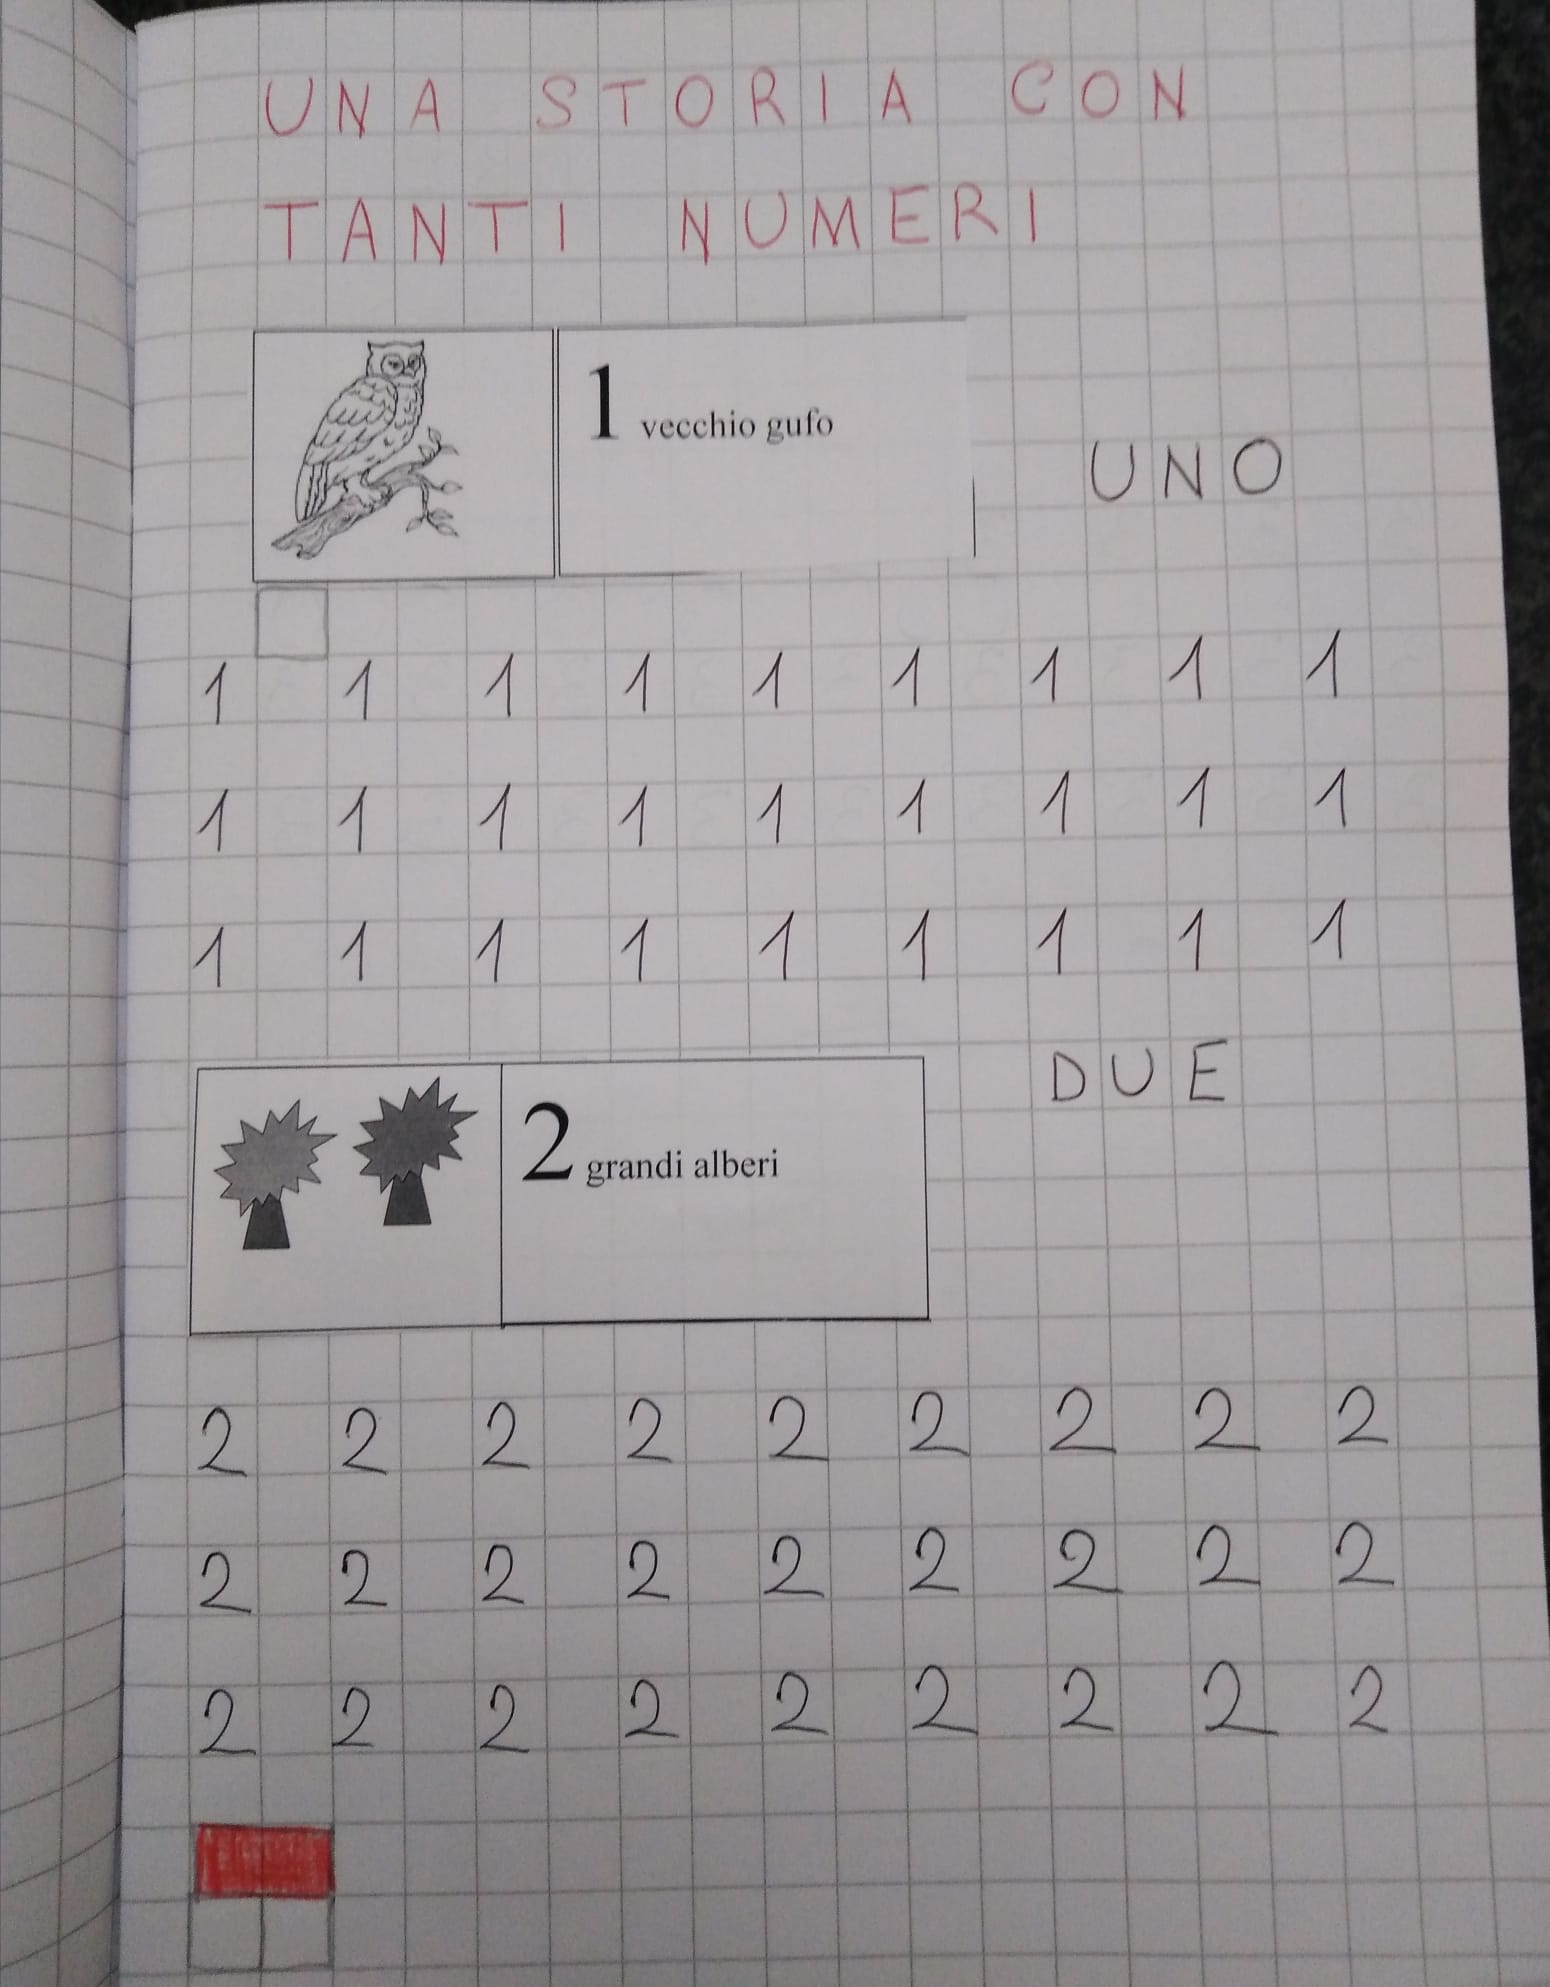 UNA STORIA CON
TANTI NUMERI
1 vecchio gufo
UNO
1 1 1 1 1 1 1 1 1
1 1 1 1 1 1 1 1 1
1 1 1 1 1 1 1 1 1
DUE
2 grandi alberi
2 2 2 2 2 2 2 2 2
2 2 2 2 2 2 2 2 2
2 2 2 2 2 2 2 2 2